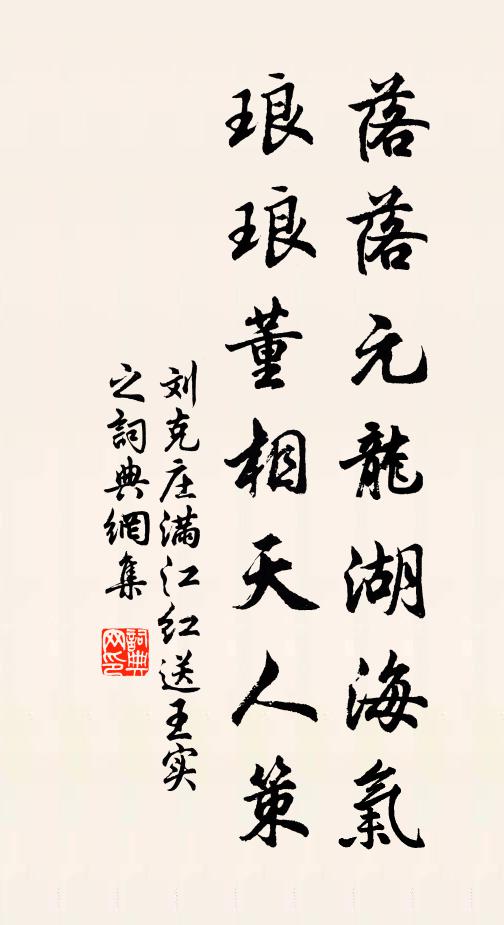 落落元龍湖海氣
琅琅董相天人策
刘克庄满江红送王实
之詞典網集
詞典网印